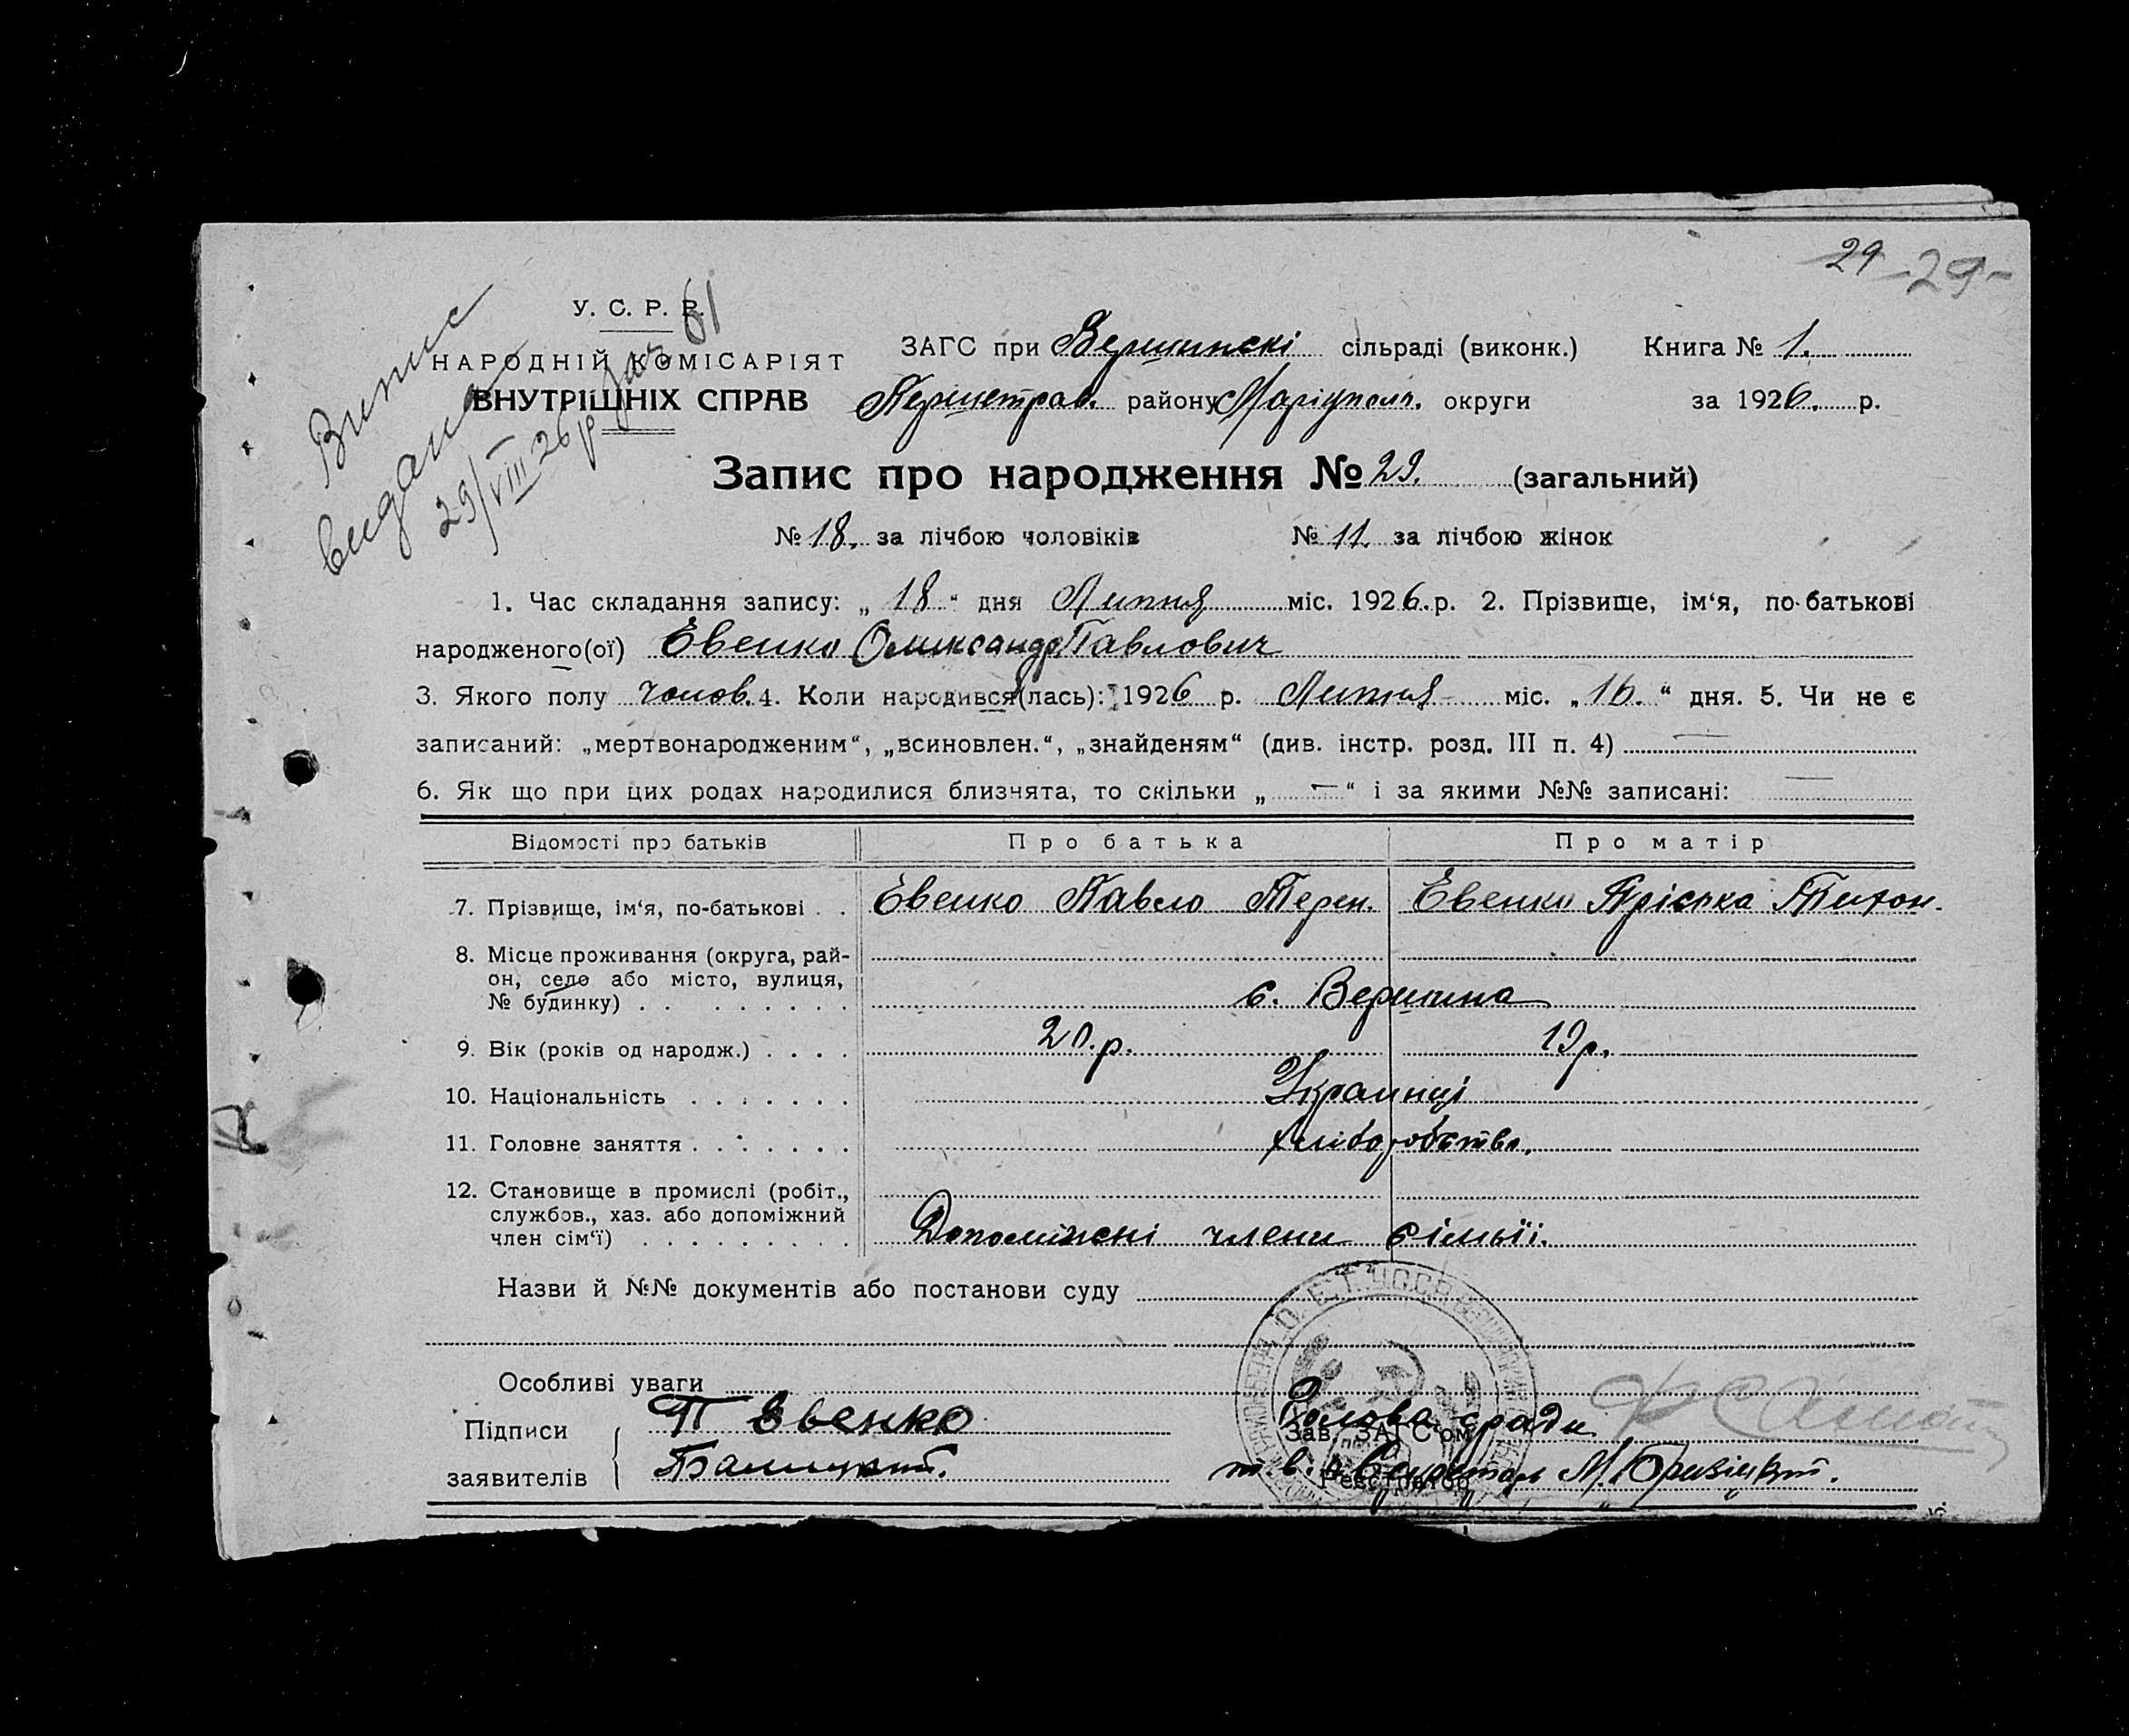 29 -29-
У. С. Р. Р.
НАРОДНІЙ КОМІСАРІЯТ
ВНУТРІШНІХ СПРАВ
Випис
видана
29/VIII 26 р
61
ЗАГС при Вершинскі сільраді (виконк.) Книга № 1.
Першотрав. району Маріупол. округи за 1926. р.
Запис про народження № 29. (загальний)
№ 18. за лічбою чоловіків № 11. за лічбою жінок
1. Час складання запису: „ 18 “ дня Липня міс. 1926. р. 2. Прізвище, ім‘я, по-батькові
народженого(ої) Евенко Олександр Павлович
3. Якого полу чолов. 4. Коли народився(лась): 1926 р. Липня міс. „ 16. “ дня. 5. Чи не є
записаний: „мертвонародженим“, „всиновлен.“, „знайденям“ (див. інстр. розд. III п. 4) —
6. Як що при цих родах народилися близнята, то скільки „ — “ і за якими №№ записані: —
Відомості про батьків Про батька Про матір
7. Прізвище, ім‘я, по-батькові . . Евенко Павло Терен. Евенко Пріська Тихон.
8. Місце проживання (округа, рай-
он, село або місто, вулиця,
№ будинку) . . . . . . . . с. Вершина
9. Вік (років од народж.) . . . . 20.р. 19р.
10. Національність . . . . . . . Украинці
11. Головне заняття . . . . . . . хліборобство.
12. Становище в промислі (робіт.,
службов., хаз. або допоміжний
член сім‘ї) . . . . . . . . . Допоміжні члени сімьїі.
Назви й №№ документів або постанови суду
Особливі уваги
Підписи П Евенко Голова с ради
Зав. ЗАГС‘ом
заявителів т. в. о. Секретарь М.
Реєстратор